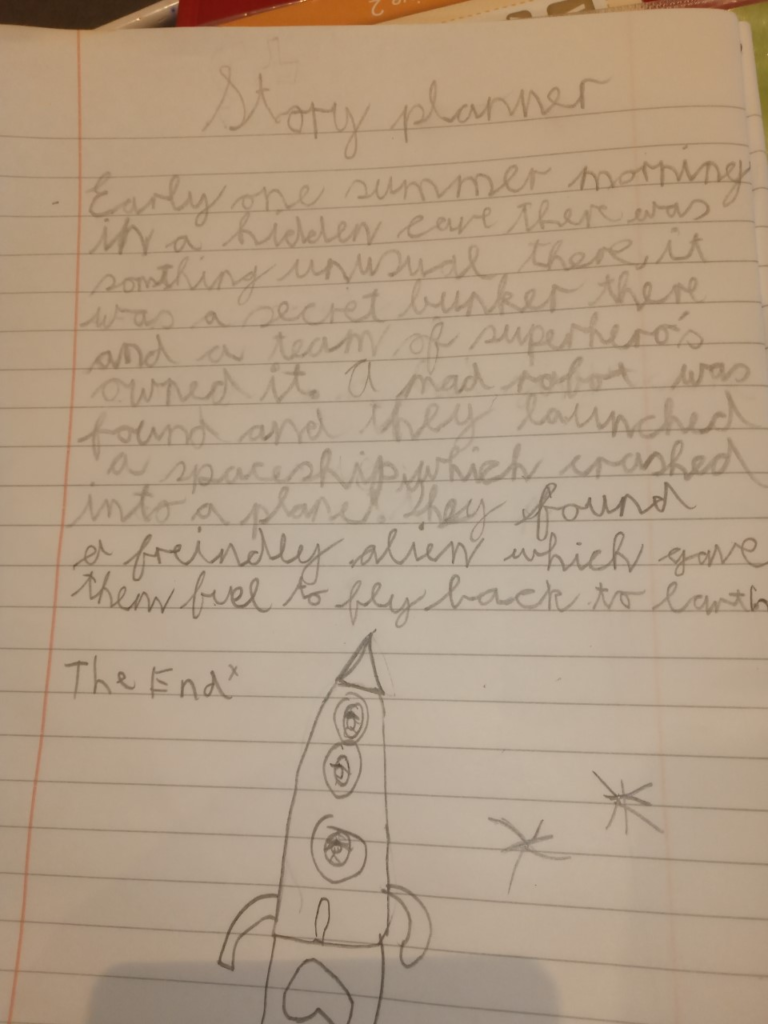 Story planner
Early one summer morning
in a hidden cave there was
somthing unusual there, it
was a secret bunker there
and a team of superhero's
owned it. A mad robot was
found and they launched
a spaceship, which crashed
into a plane. They found
a freindly alien which gave
them fuel to fly back to earth
The End x